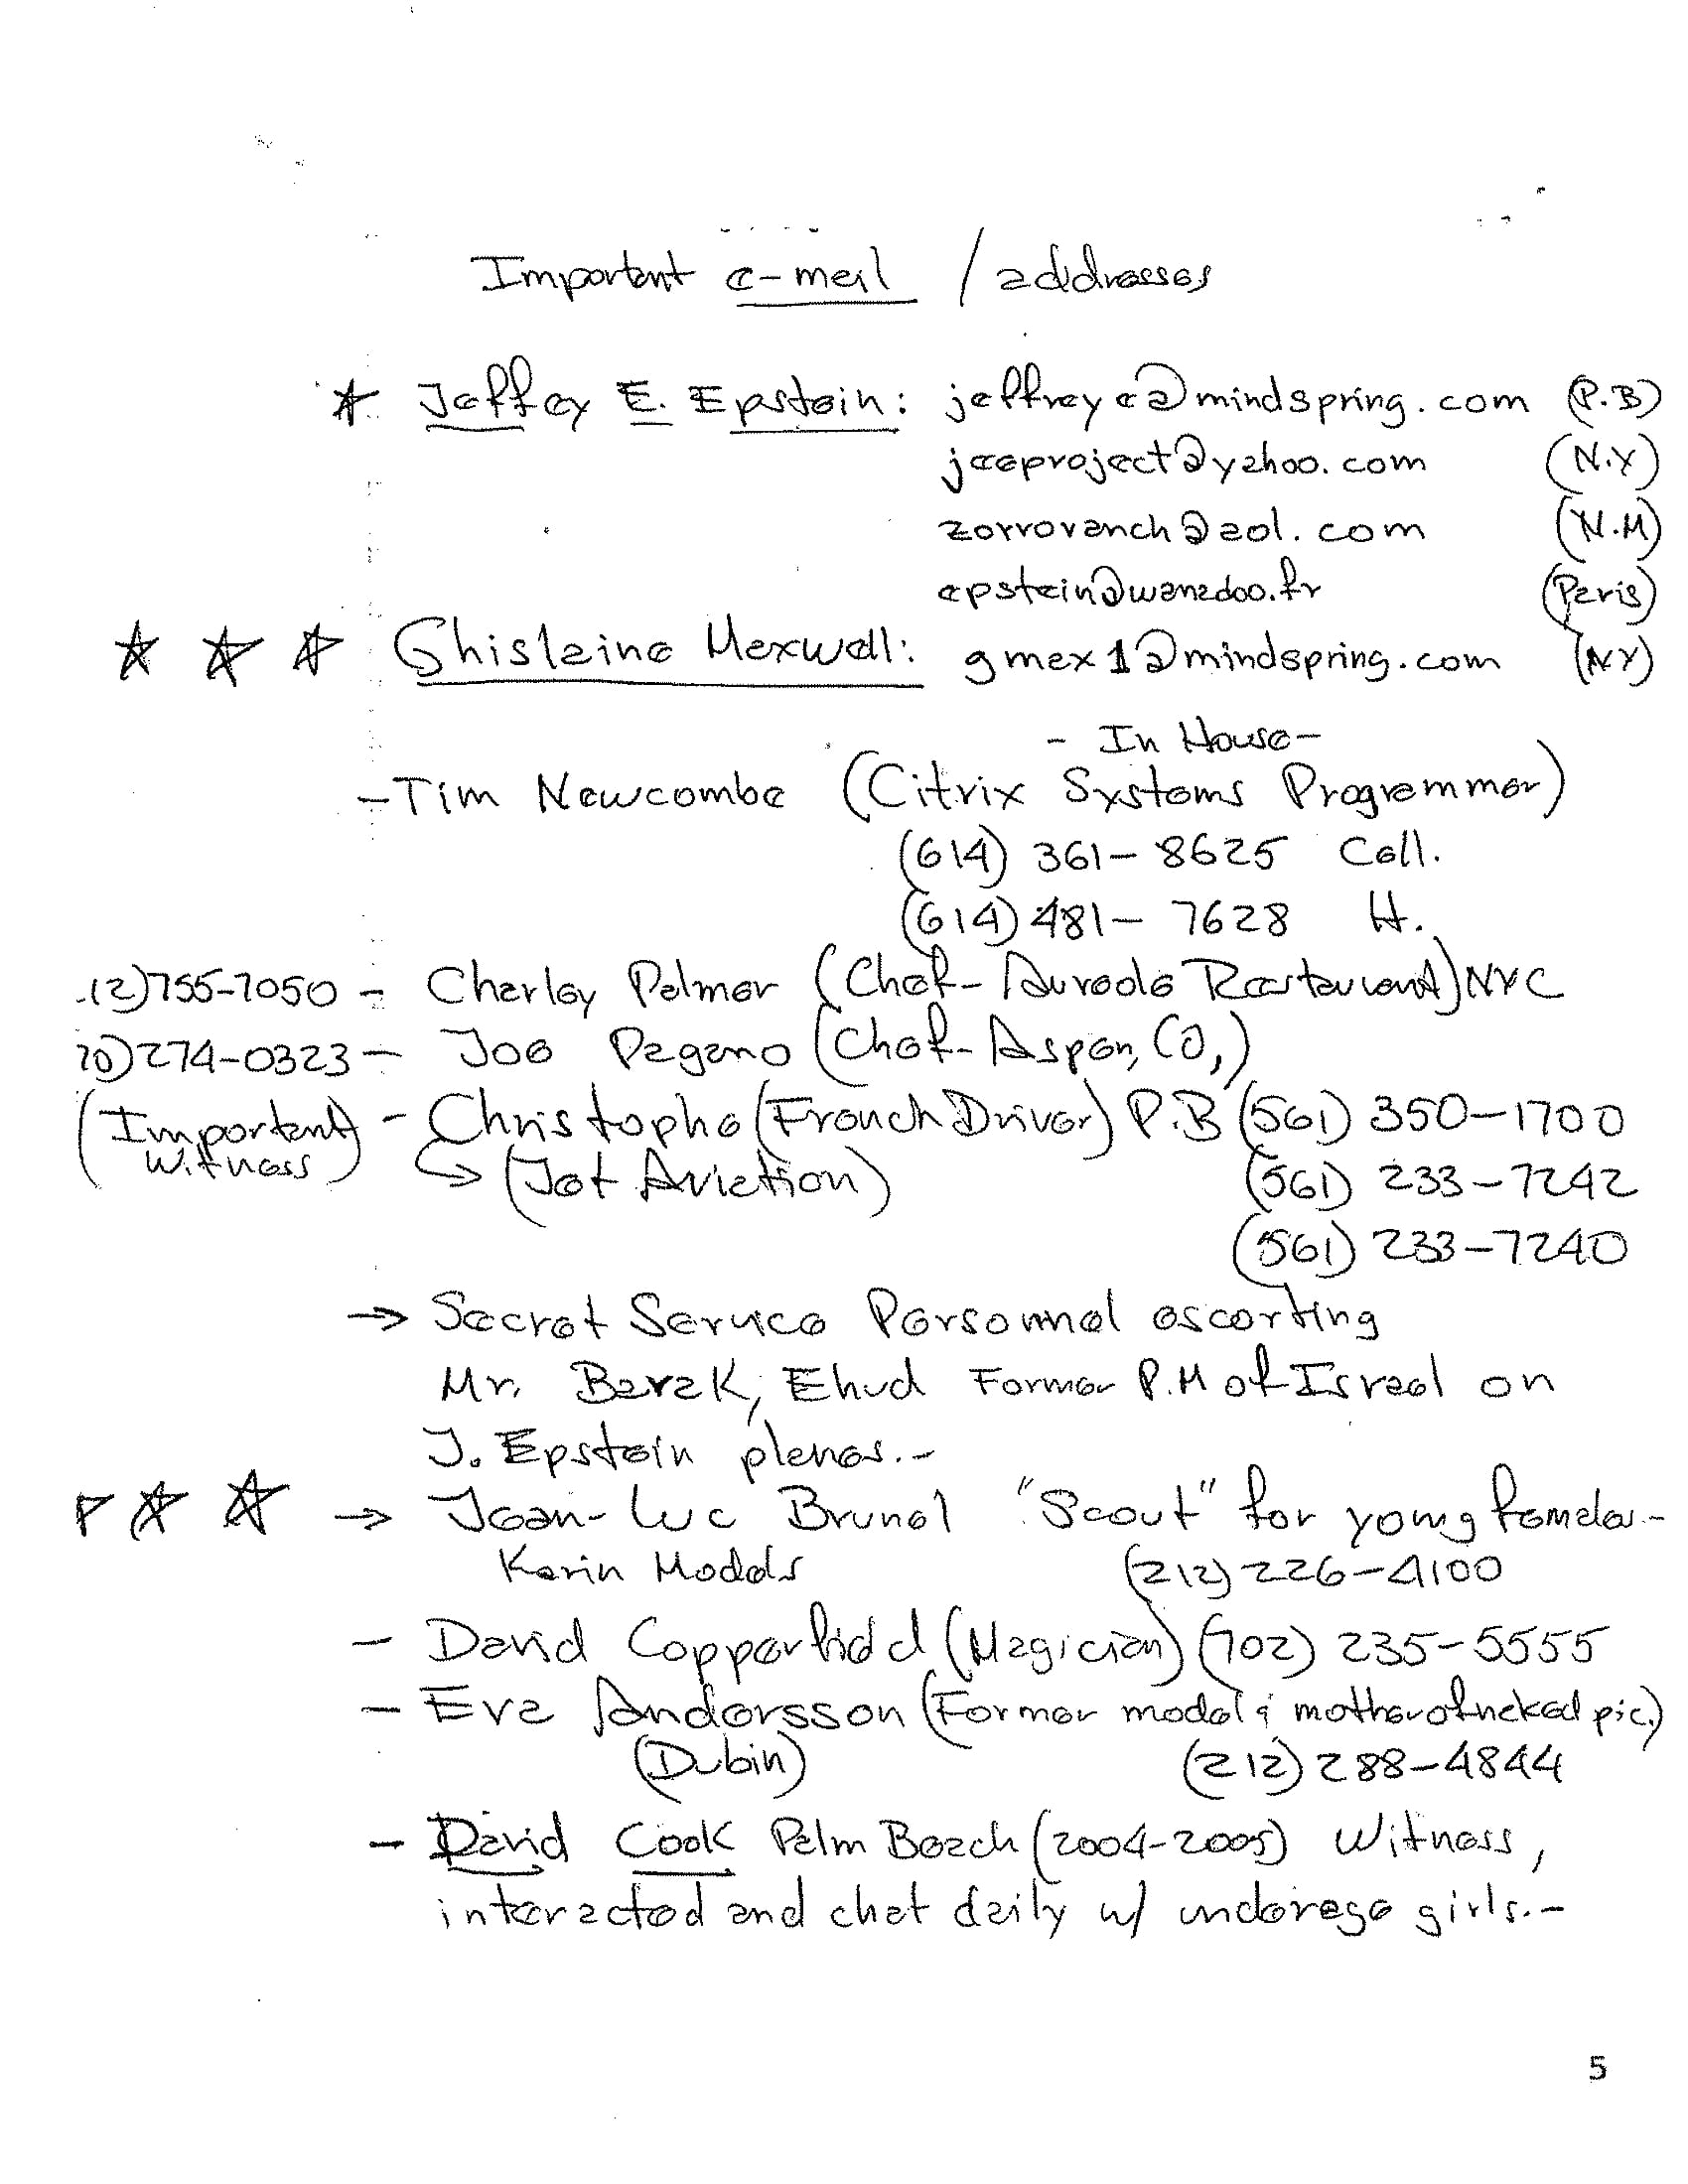 Important e-mail / addresses
Jeffrey E. Epstein: jeffreye@mindspring.com (P.B)
jeeproject@yahoo.com (N.Y)
zorroranch@aol.com (N.M)
epstein@wanadoo.fr (Paris)
Ghislaine Maxwell: gmax1@mindspring.com (NY)
- In House -
- Tim Newcombe (Citrix Systems Programmer)
(614) 361-8625 Cell.
(614) 481-7628 H.
12)755-7050 - Charley Palmer (Chef- Aureole Restaurant) NYC
70)274-0323 - Joe Pagano (Chef- Aspen, CO,)
(Important Witness) - Christophe (French Driver) P.B (561) 350-1700
→ (Jet Aviation) (561) 233-7242
(561) 233-7240
→ Secret Service Personnel escorting
Mr. Barak, Ehud Former P.M of Israel on
J. Epstein planes.-
→ Jean-Luc Brunel "Scout" for young females.-
Karin Models (212) 226-4100
- David Copperfield (Magician) (702) 235-5555
- Eva Andersson (Former model & mother of naked pic.)
(Dubin) (212) 288-4844
- David Cook Palm Beach (2004-2005) Witness,
interacted and chat daily w/ underage girls.-
5